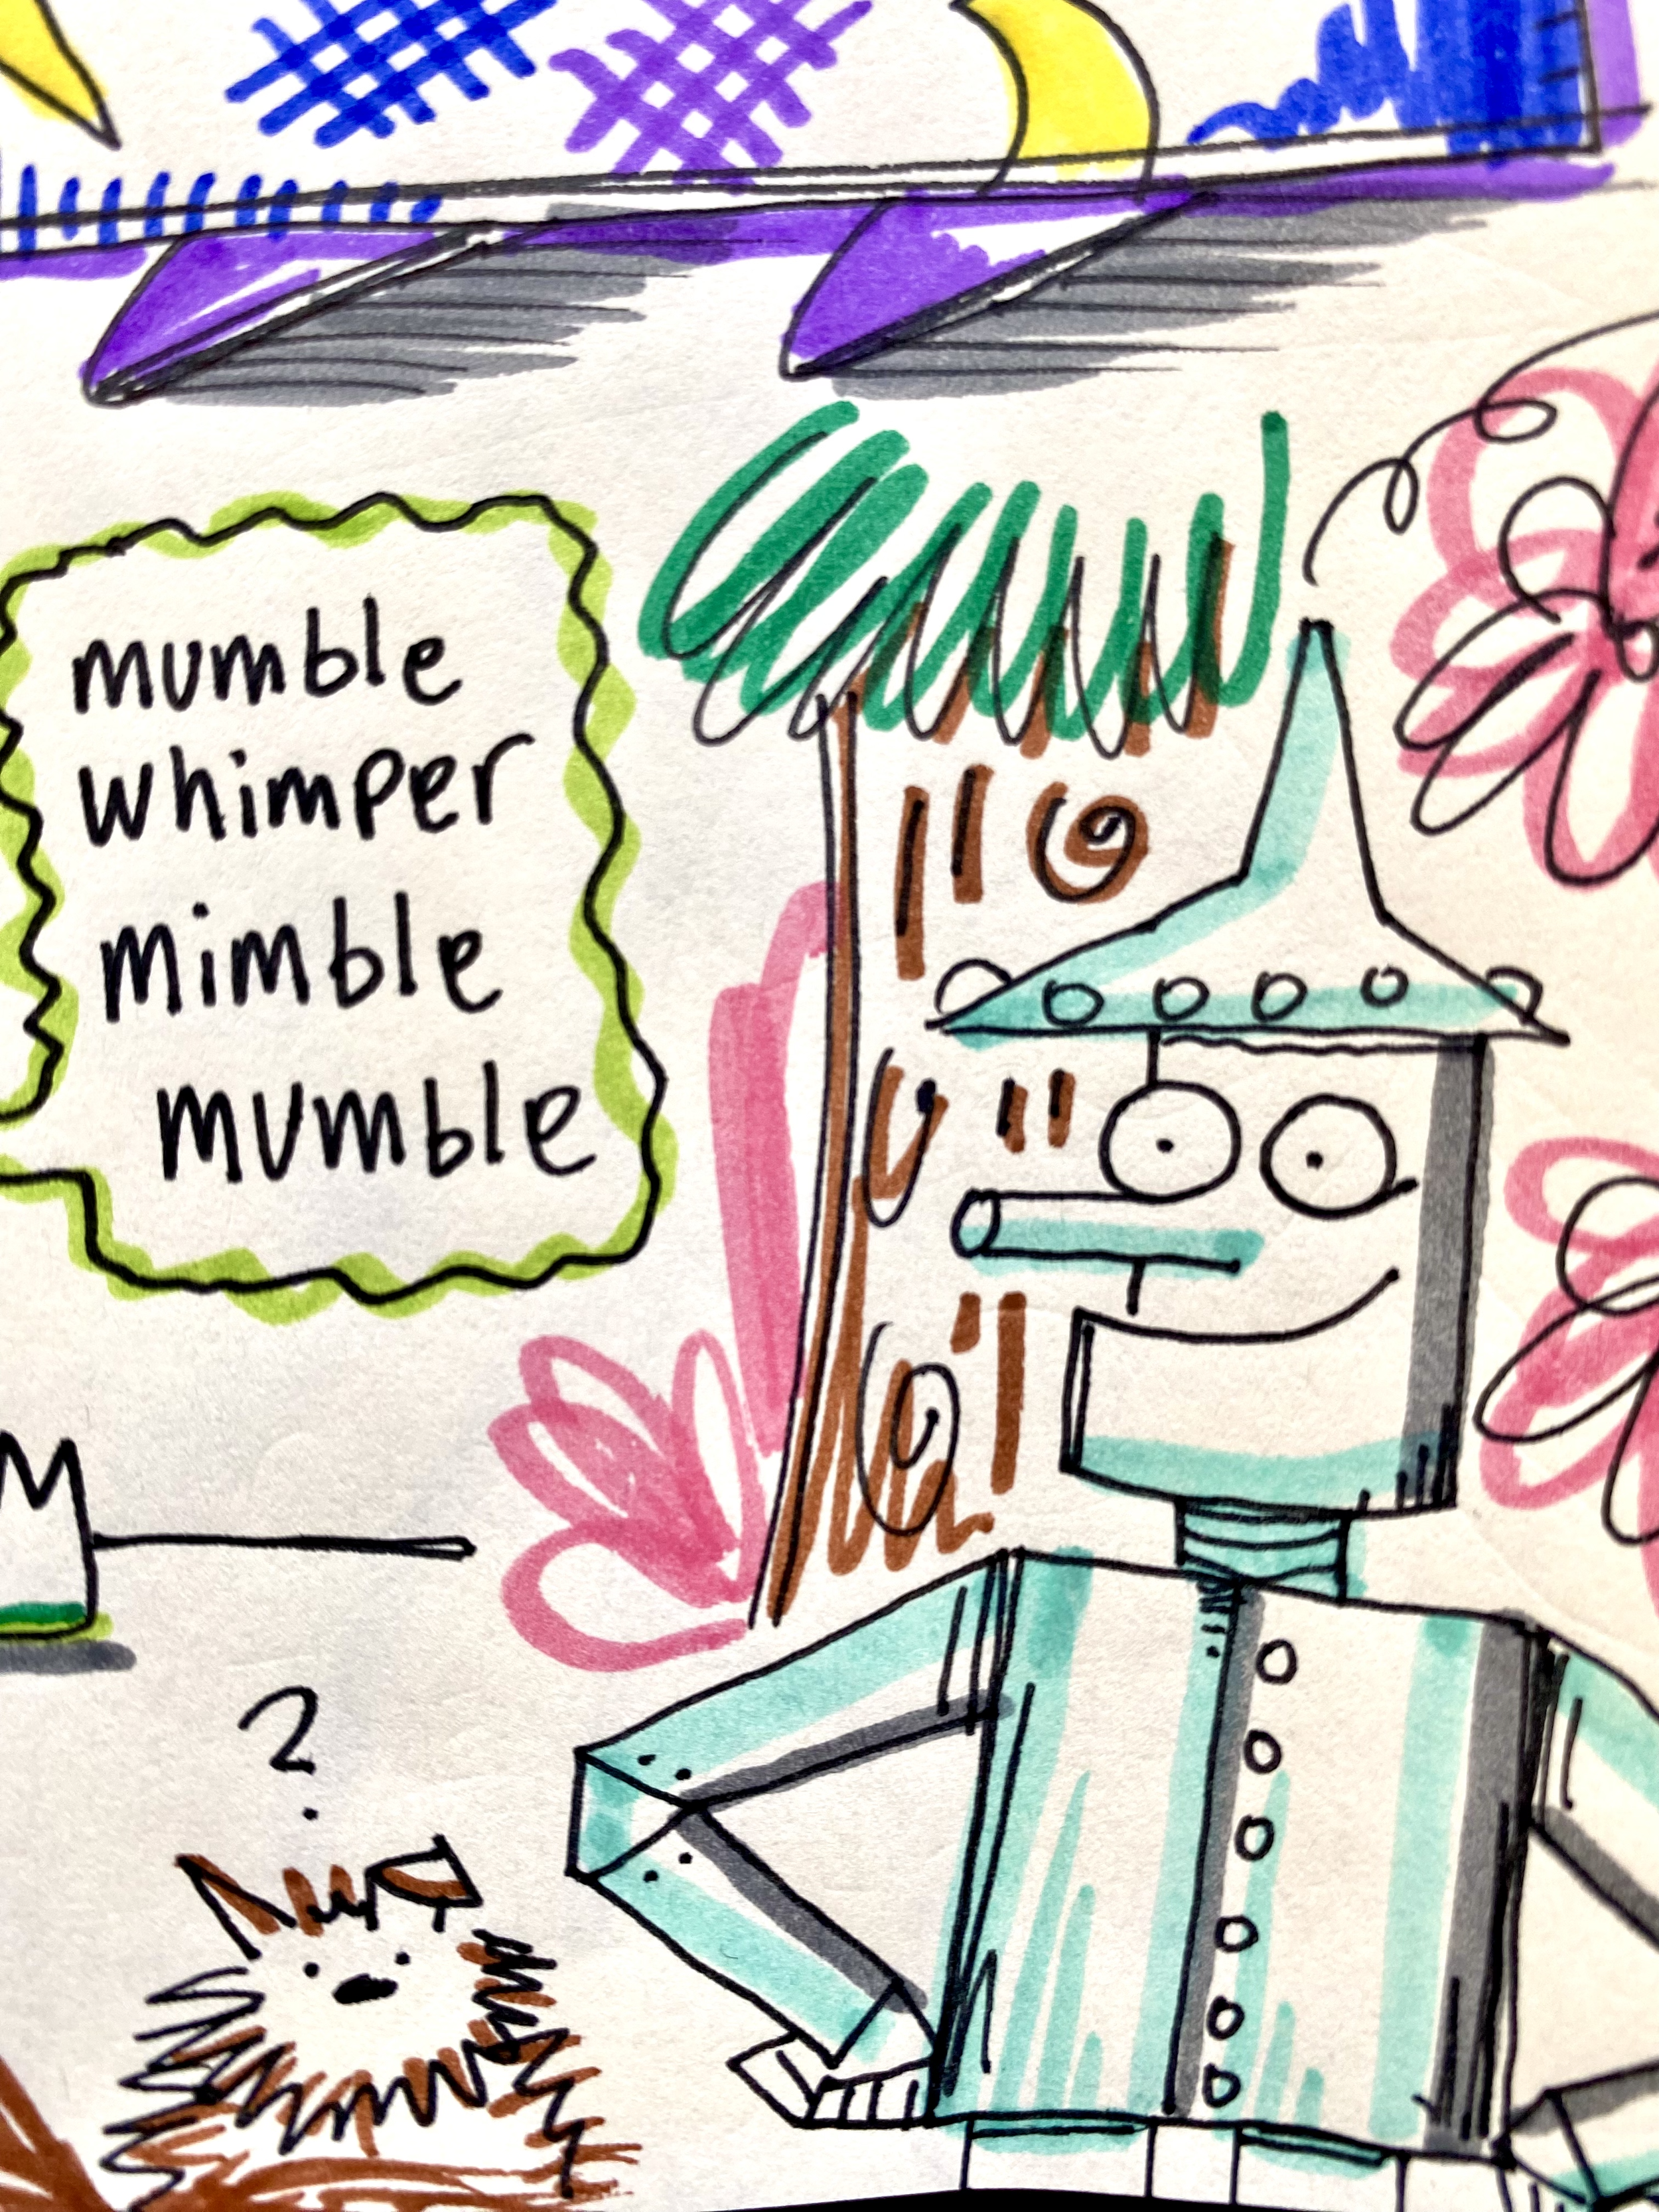 mumble
whimper
mimble
mumble
?